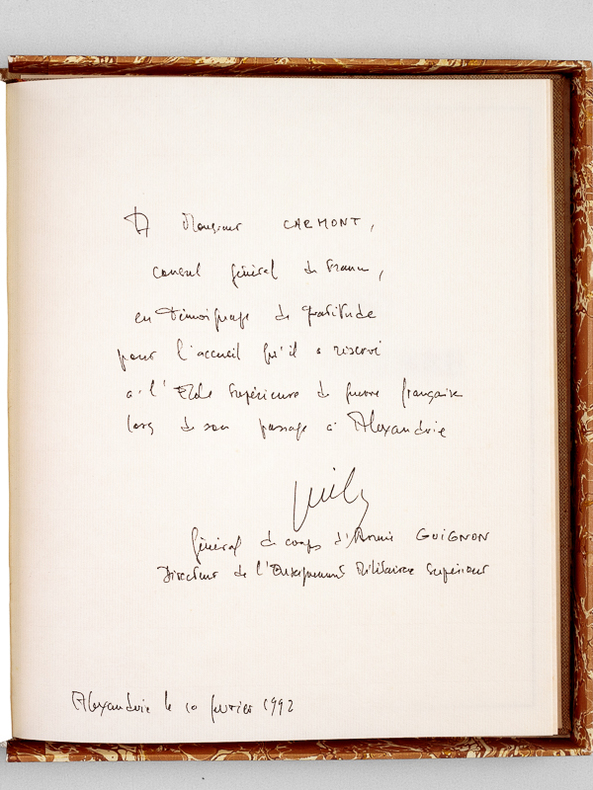 A Monsieur CARMONT,
consul général de France,
en témoignage de gratitude
pour l'accueil qu'il a réservé
à l'Ecole Supérieure de guerre française
lors de son passage à Alexandrie
Général de corps d'Armée GUIGNON
Directeur de l'Enseignement Militaire Supérieur
Alexandrie le 10 février 1992